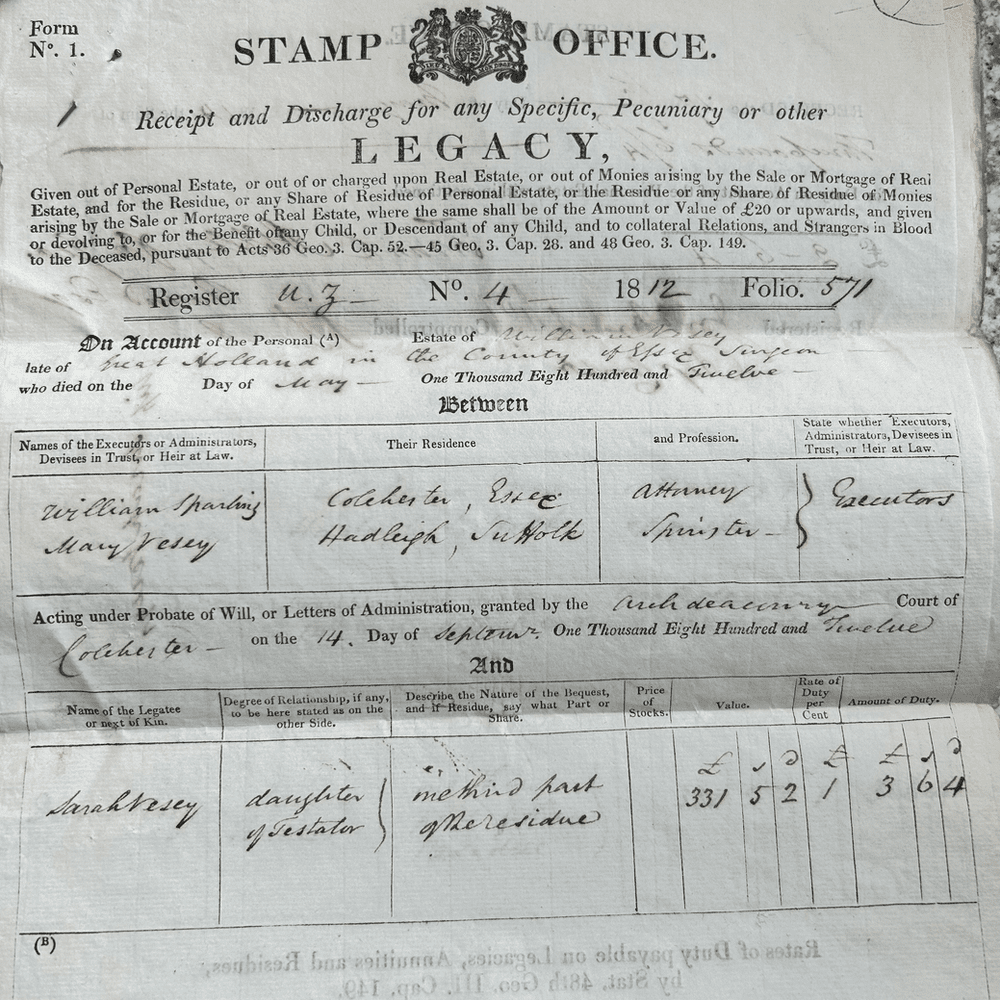 Form
Nº. 1.
STAMP OFFICE.
Receipt and Discharge for any Specific, Pecuniary or other
LEGACY,
Given out of Personal Estate, or out of or charged upon Real Estate, or out of Monies arising by the Sale or Mortgage of Real
Estate, and for the Residue, or any Share of Residue of Personal Estate, or the Residue or any Share of Residue of Monies
arising by the Sale or Mortgage of Real Estate, where the same shall be of the Amount or Value of £20 or upwards, and given
or devolving to, or for the Benefit of any Child, or Descendant of any Child, and to collateral Relations, and Strangers in Blood
to the Deceased, pursuant to Acts 36 Geo. 3. Cap. 52.—45 Geo. 3. Cap. 28. and 48 Geo. 3. Cap. 149.
Register U. Z Nº. 4 1812 Folio. 571
On Account of the Personal (A) Estate of William Vesey
late of Great Holland in the County of Essex Surgeon
who died on the Day of May One Thousand Eight Hundred and Twelve
Between
Names of the Executors or Administrators, Devisees in Trust, or Heir at Law. Their Residence and Profession. State whether Executors, Administrators, Devisees in Trust, or Heir at Law.
William Sparling Colchester, Essex Attorney Executors
Mary Vesey Hadleigh, Suffolk Spinster
Acting under Probate of Will, or Letters of Administration, granted by the Archdeaconry Court of
Colchester on the 14. Day of Septemr. One Thousand Eight Hundred and Twelve
And
Name of the Legatee or next of Kin. Degree of Relationship, if any, to be here stated as on the other Side. Describe the Nature of the Bequest, and if Residue, say what Part or Share. Price of Stocks. Value. Rate of Duty per Cent Amount of Duty.
£ s d £ £ s d
Sarah Vesey daughter one third part 331 5 2 1 3 6 4
of Testator of the residue
(B)
Rates of Duty payable on Legacies, Annuities and Residues,
by Stat. 48th Geo. III. Cap. 149.